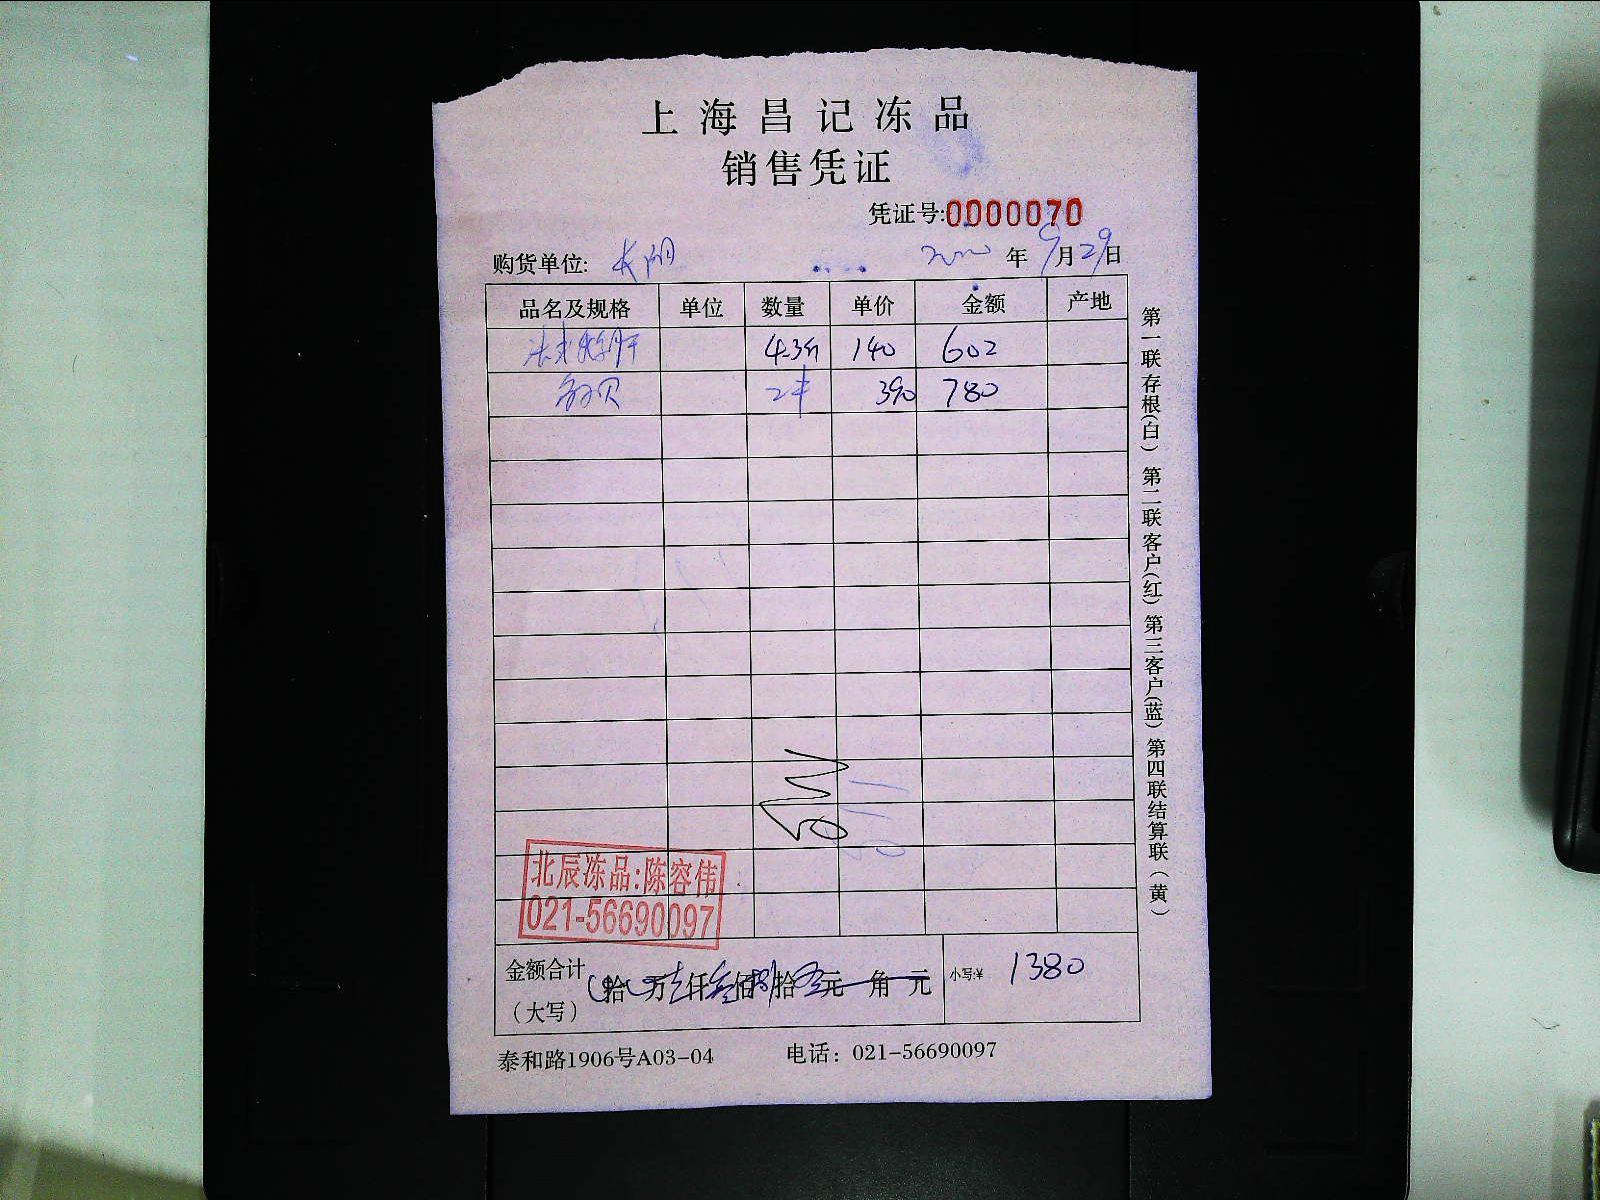 上海昌记冻品
销售凭证
凭证号:0000070
购货单位: 年9月29日
品名及规格 单位 数量 单价 金额 产地
法式鹅肝 4.3斤 140 602
2 390 780
北辰冻品:陈容伟
021-56690097
金额合计 拾 万 仟 佰 拾 元 角 元 小写:¥ 1380
（大写）
泰和路1906号A03-04 电话：021-56690097
第一联存根(白) 第二联客户(红) 第三客户(蓝) 第四联结算联(黄)